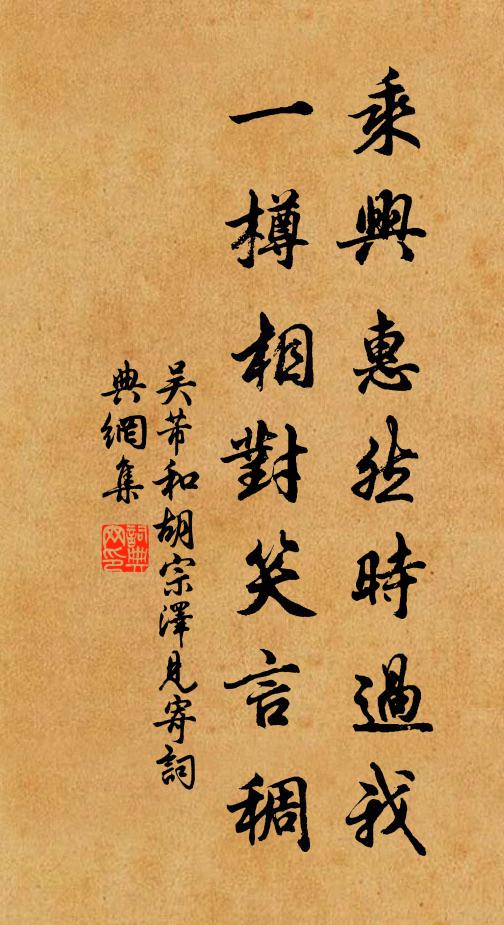 乘興惠然時過我
一樽相對笑言稠
吴芾和胡宗澤見寄詞
典網集
詞典
网印